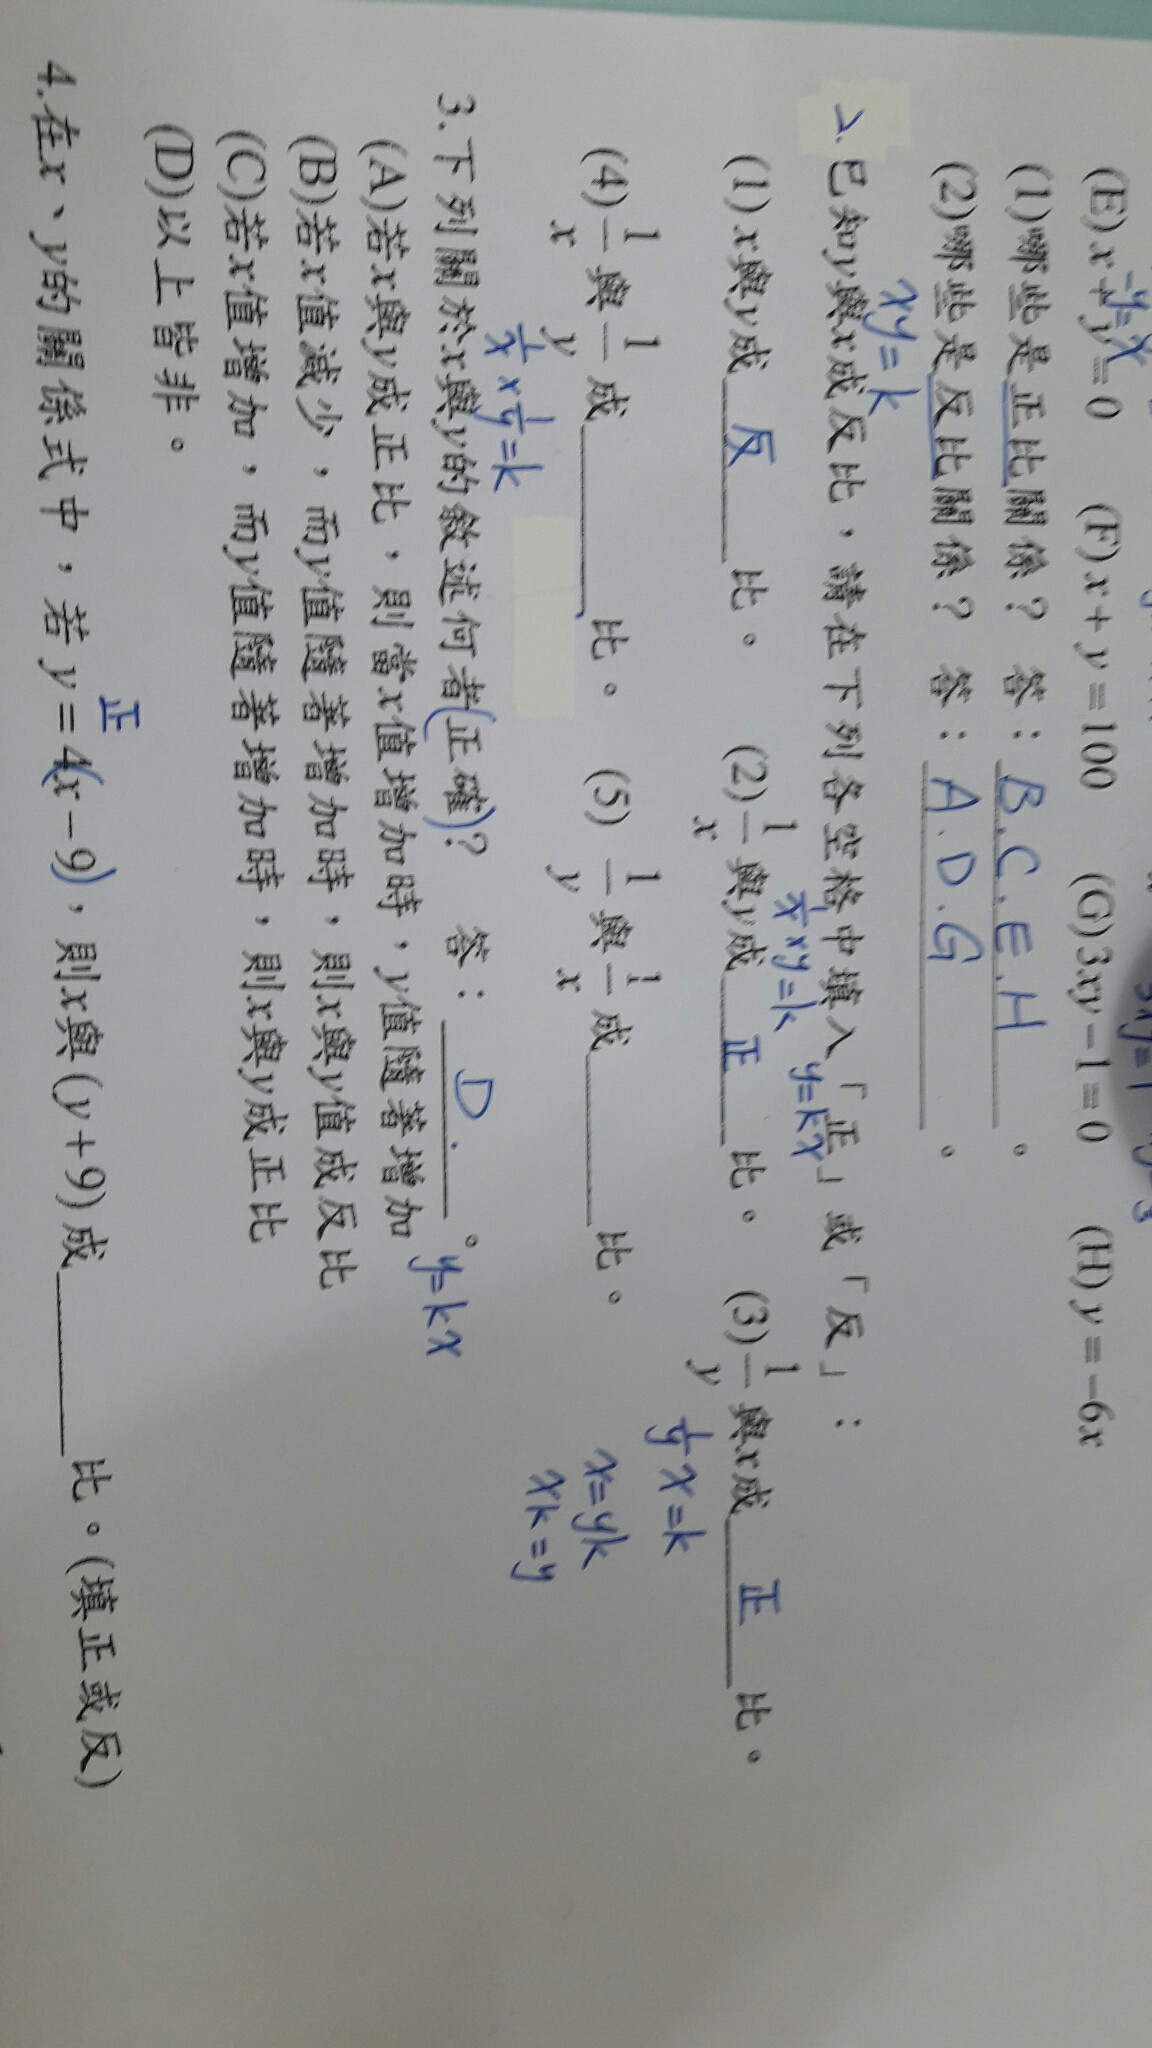 -y=x
(E) x+y=0 (F) x+y=100 (G) 3xy-1=0 (H) y=-6x
(1)哪些是正比關係? 答: B.C.E.H 。
(2)哪些是反比關係? 答: A.D.G 。
xy=k
2.已知y與x成反比,請在下列各空格中填入「正」或「反」:
1/x×y=k y=kx
(1) x與y成 反 比。 (2) 1/x 與y成 正 比。 (3) 1/y 與x成 正 比。
1/y x=k
x=yk
xk=y
(4) 1/x 與 1/y 成 比。 (5) 1/y 與 1/x 成 比。
1/x×1/y=k
3.下列關於x與y的敘述何者(正確)? 答: D. 。
y=kx
(A)若x與y成正比,則當x值增加時,y值隨著增加
(B)若x值減少,而y值隨著增加時,則x與y值成反比
(C)若x值增加,而y值隨著增加時,則x與y成正比
(D)以上皆非。
正
4.在x、y的關係式中,若y=4(x-9),則x與(y+9)成 比。(填正或反)